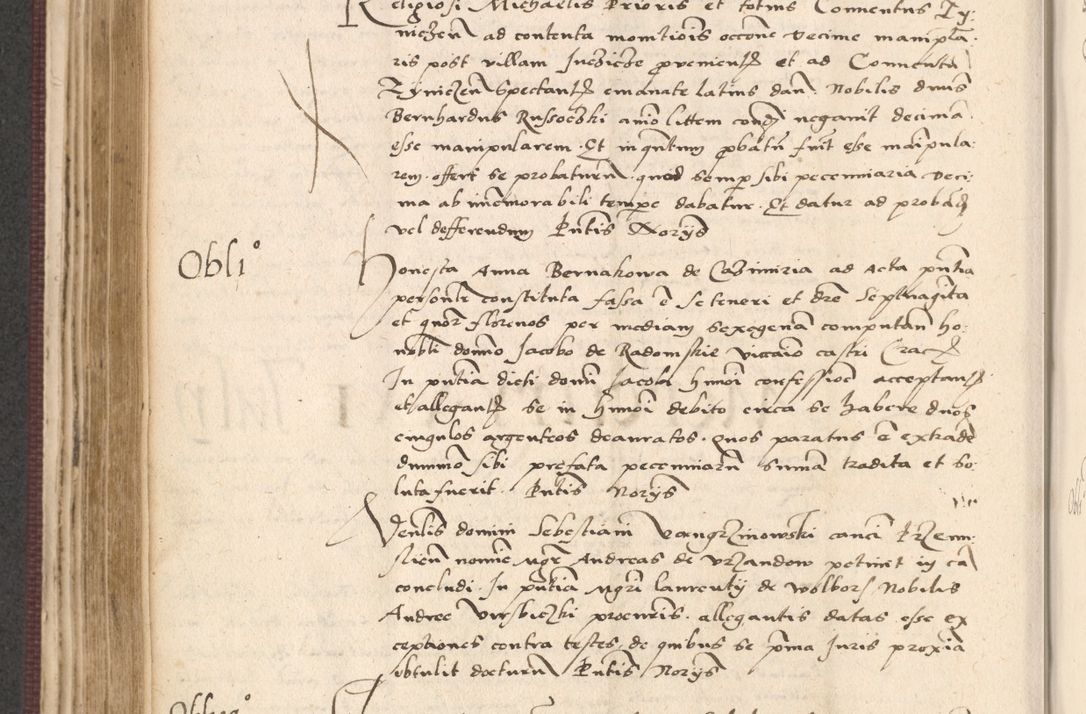 Religiosi Michaelis Prioris et totius Conventus Ty:
niczen ad contenta monitiois occone decime manipla:
ris post villam provenien et ad Conventu
Tyniczen spectan emanate latius dan. Nobilis dnus
Bernhardus Russoczki anio littem con negavit decima
esse manipularem. Et in qntum pbatu fuit esse maipula:
rem. offert se probaturu quod semp sibi pecenniaria deci:
ma ab imemorabili tempe dabatur. Et datur ad proband
vel defferendum Pntis Norijs
Obli°
Honesta Anna Bernakowa de Cazimiria ad Acta pntia
personlr constituta fassa e se teneri et dre septuagita
et quor florenos per mediam sexagena computan ho:
nobli domno Jacobo de Radomskie vicaio castri Crac
In pntia dicti domi Jacobi hmoi confessioe acceptan
et allegan se in hmoi debito circa se habere duos
cingulos argenteos deauratos. Quos paratus e extrade
dummo sibi prefata pecenniaru suma tradita et so:
luta fuerit. Pntis Norijs
Venlis domini Sebestiani canci Przemi:
slien nomie Mgr Andreas de Vrzandow petivit in ca
concludi. In pntia Mgri Laurentij de Wolbors Nobilis
Andree procuris. allegantis datas esse ex
ceptiones contra testes, de quibus se pma Juris proxia
obtulit docturu Pntis Norijs